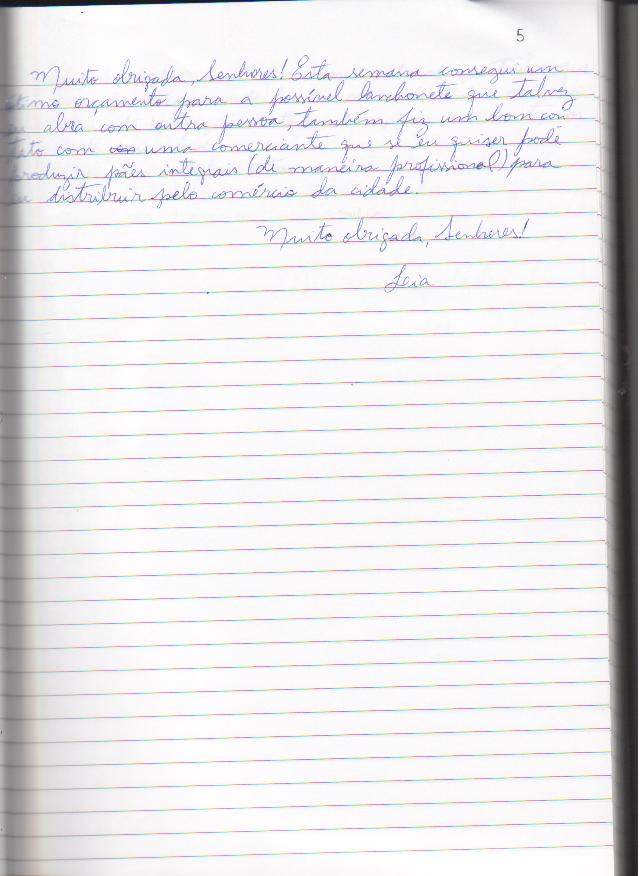 5
Muito obrigada, Senhores! Esta semana consegui um
ótimo orçamento para a possível lanchonete que talvez
eu abra com outra pessoa, também fiz um bom con
tato com uma comerciante que se eu quiser pode
produzir pães integrais (de maneira profissional) para
eu distribuir pelo comércio da cidade.
Muito obrigada, Senhores!
Leia